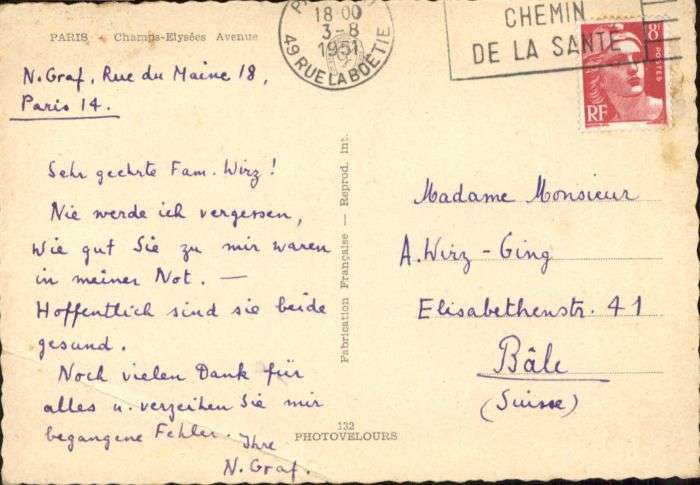 PARIS - Champs-Elysées Avenue
N. Graf, Rue du Maine 18,
Paris 14.
Sehr geehrte Fam. Wirz!
Nie werde ich vergessen,
wie gut Sie zu mir waren
in meiner Not. —
Hoffentlich sind sie beide
gesund.
Noch vielen Dank für
alles u. verzeihen Sie mir
begangene Fehler. Ihre
N. Graf.
Fabrication Française — Reprod. Int.
132
PHOTOVELOURS
18 00
3-8
1951
49 RUE LA BOETIE
CHEMIN
DE LA SANTE
8F
POSTES
RF
Madame Monsieur
A. Wirz - Ging
Elisabethenstr. 41
Bâle
(Suisse)